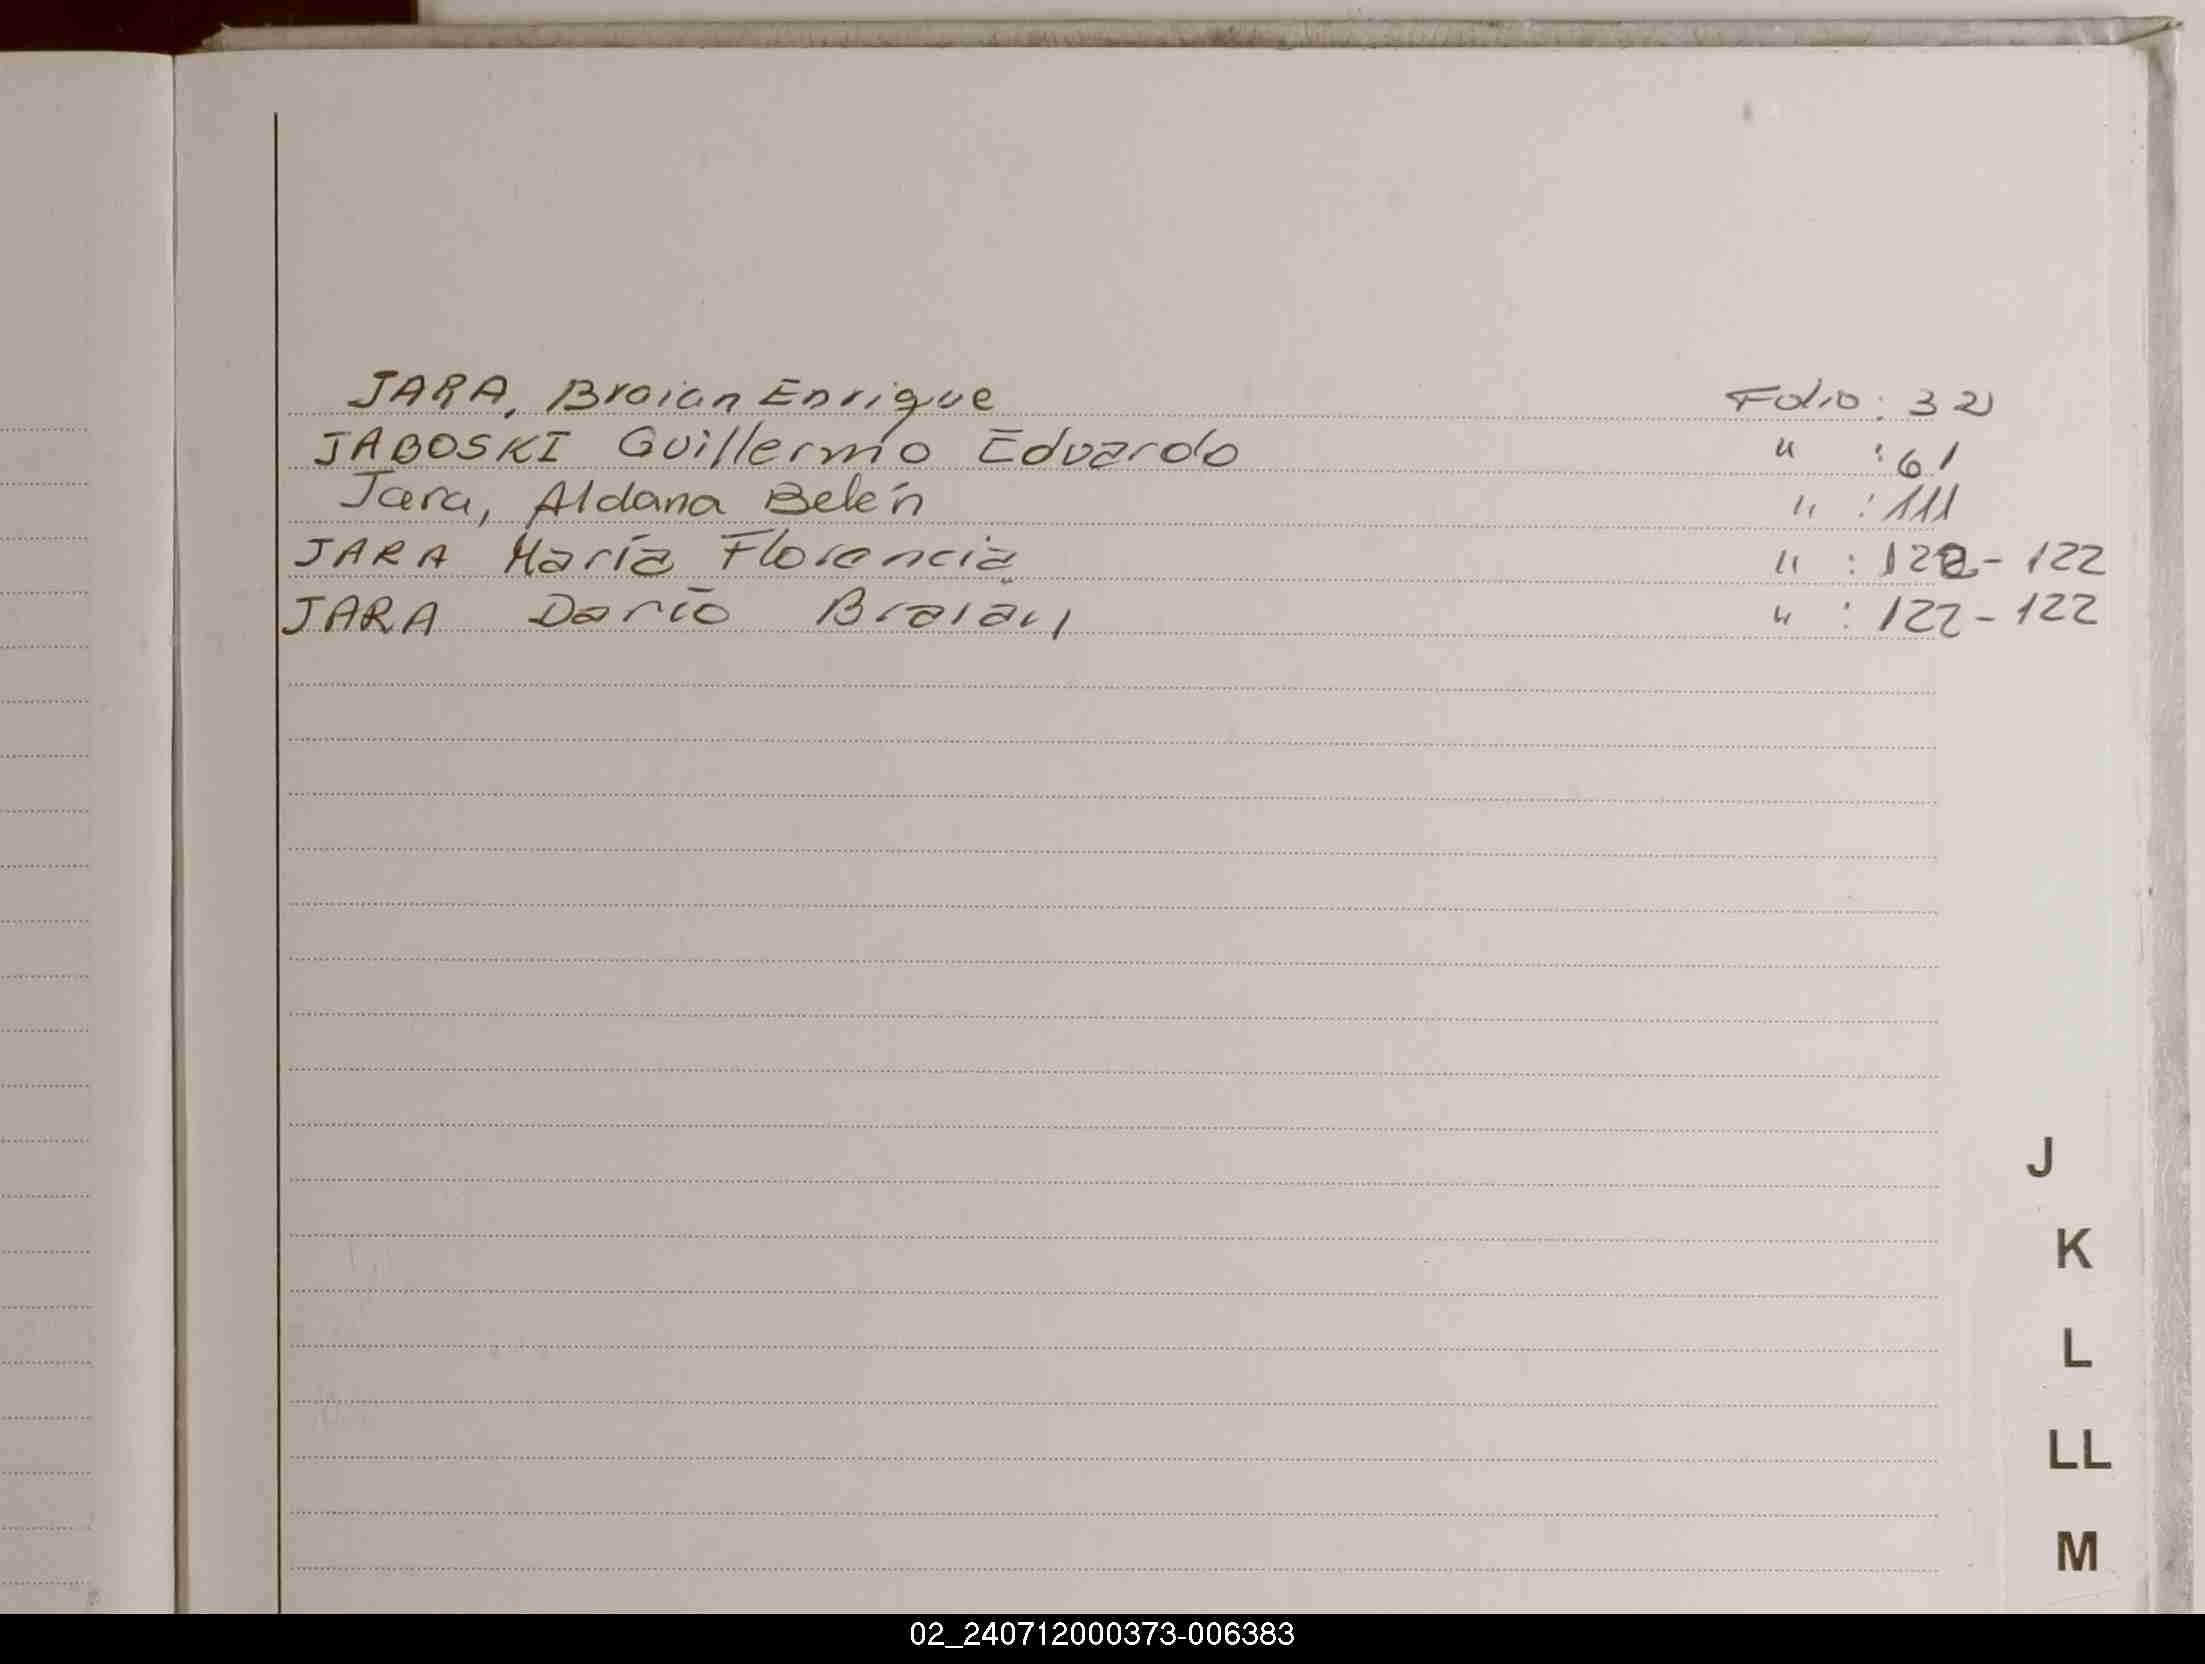 JARA, Braian Enrique Folio: 32
JABOSKI Guillermo Eduardo " : 61
Jara, Aldana Belén " : 111
JARA María Florencia " : 122 - 122
JARA Darío Braian " : 122 - 122
J
K
L
LL
M
02_240712000373-006383